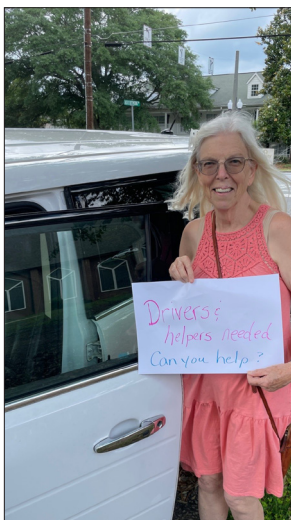 Drivers &
helpers needed
Can you help?